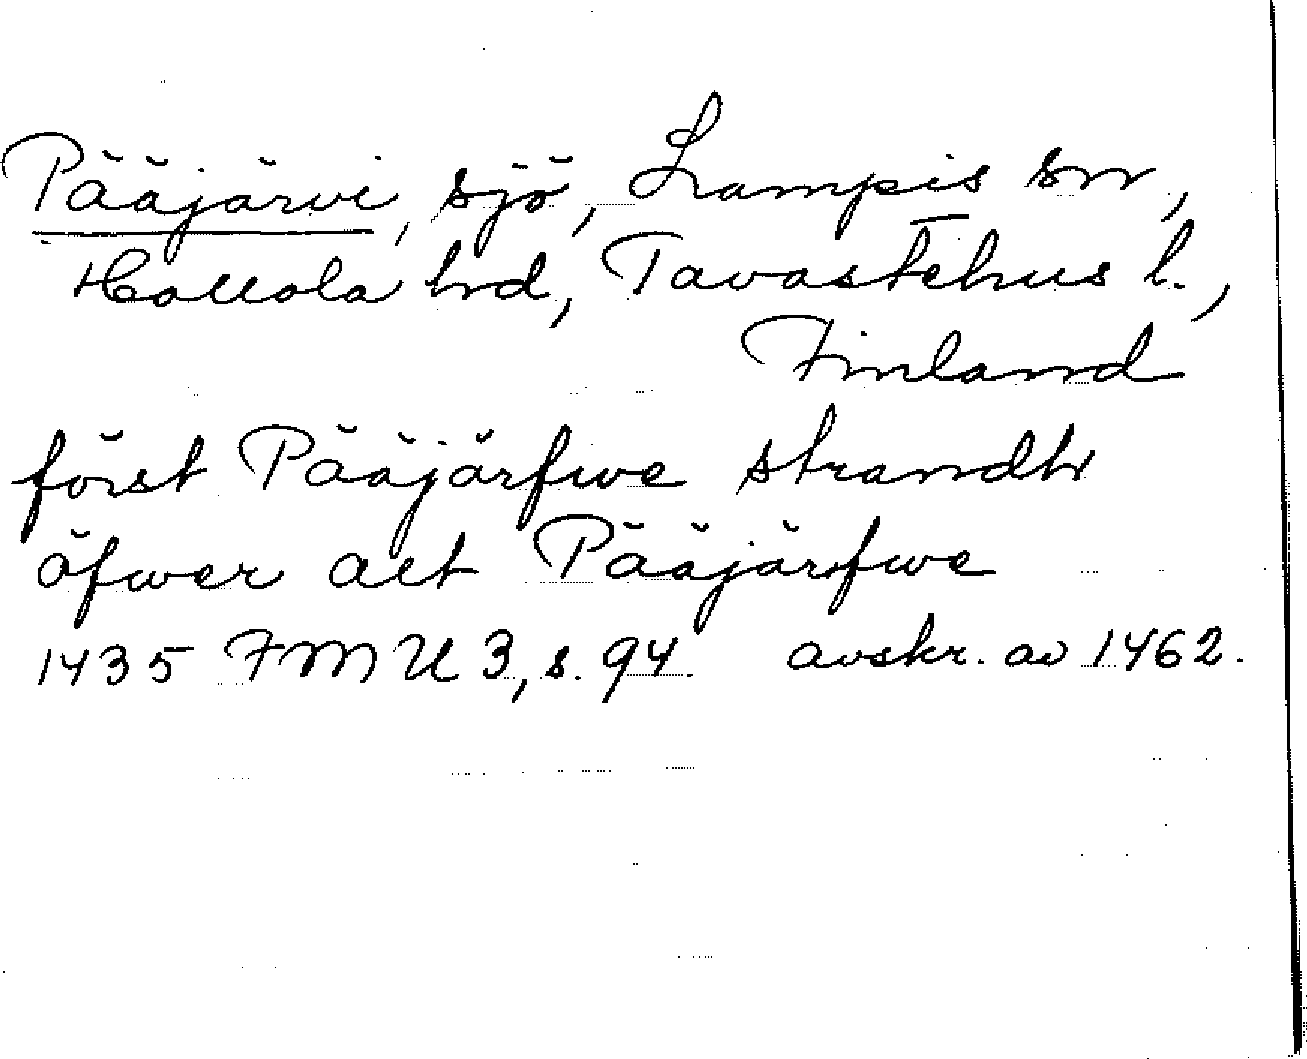 Pääjärvi, sjö, Lampis sn,
Hollola hd, Tavastehus l.,
Finland
först Pääjärfwe strandh
öfwer alt Pääjärfwe
1435 FMU 3, s. 94. avskr. av 1462.